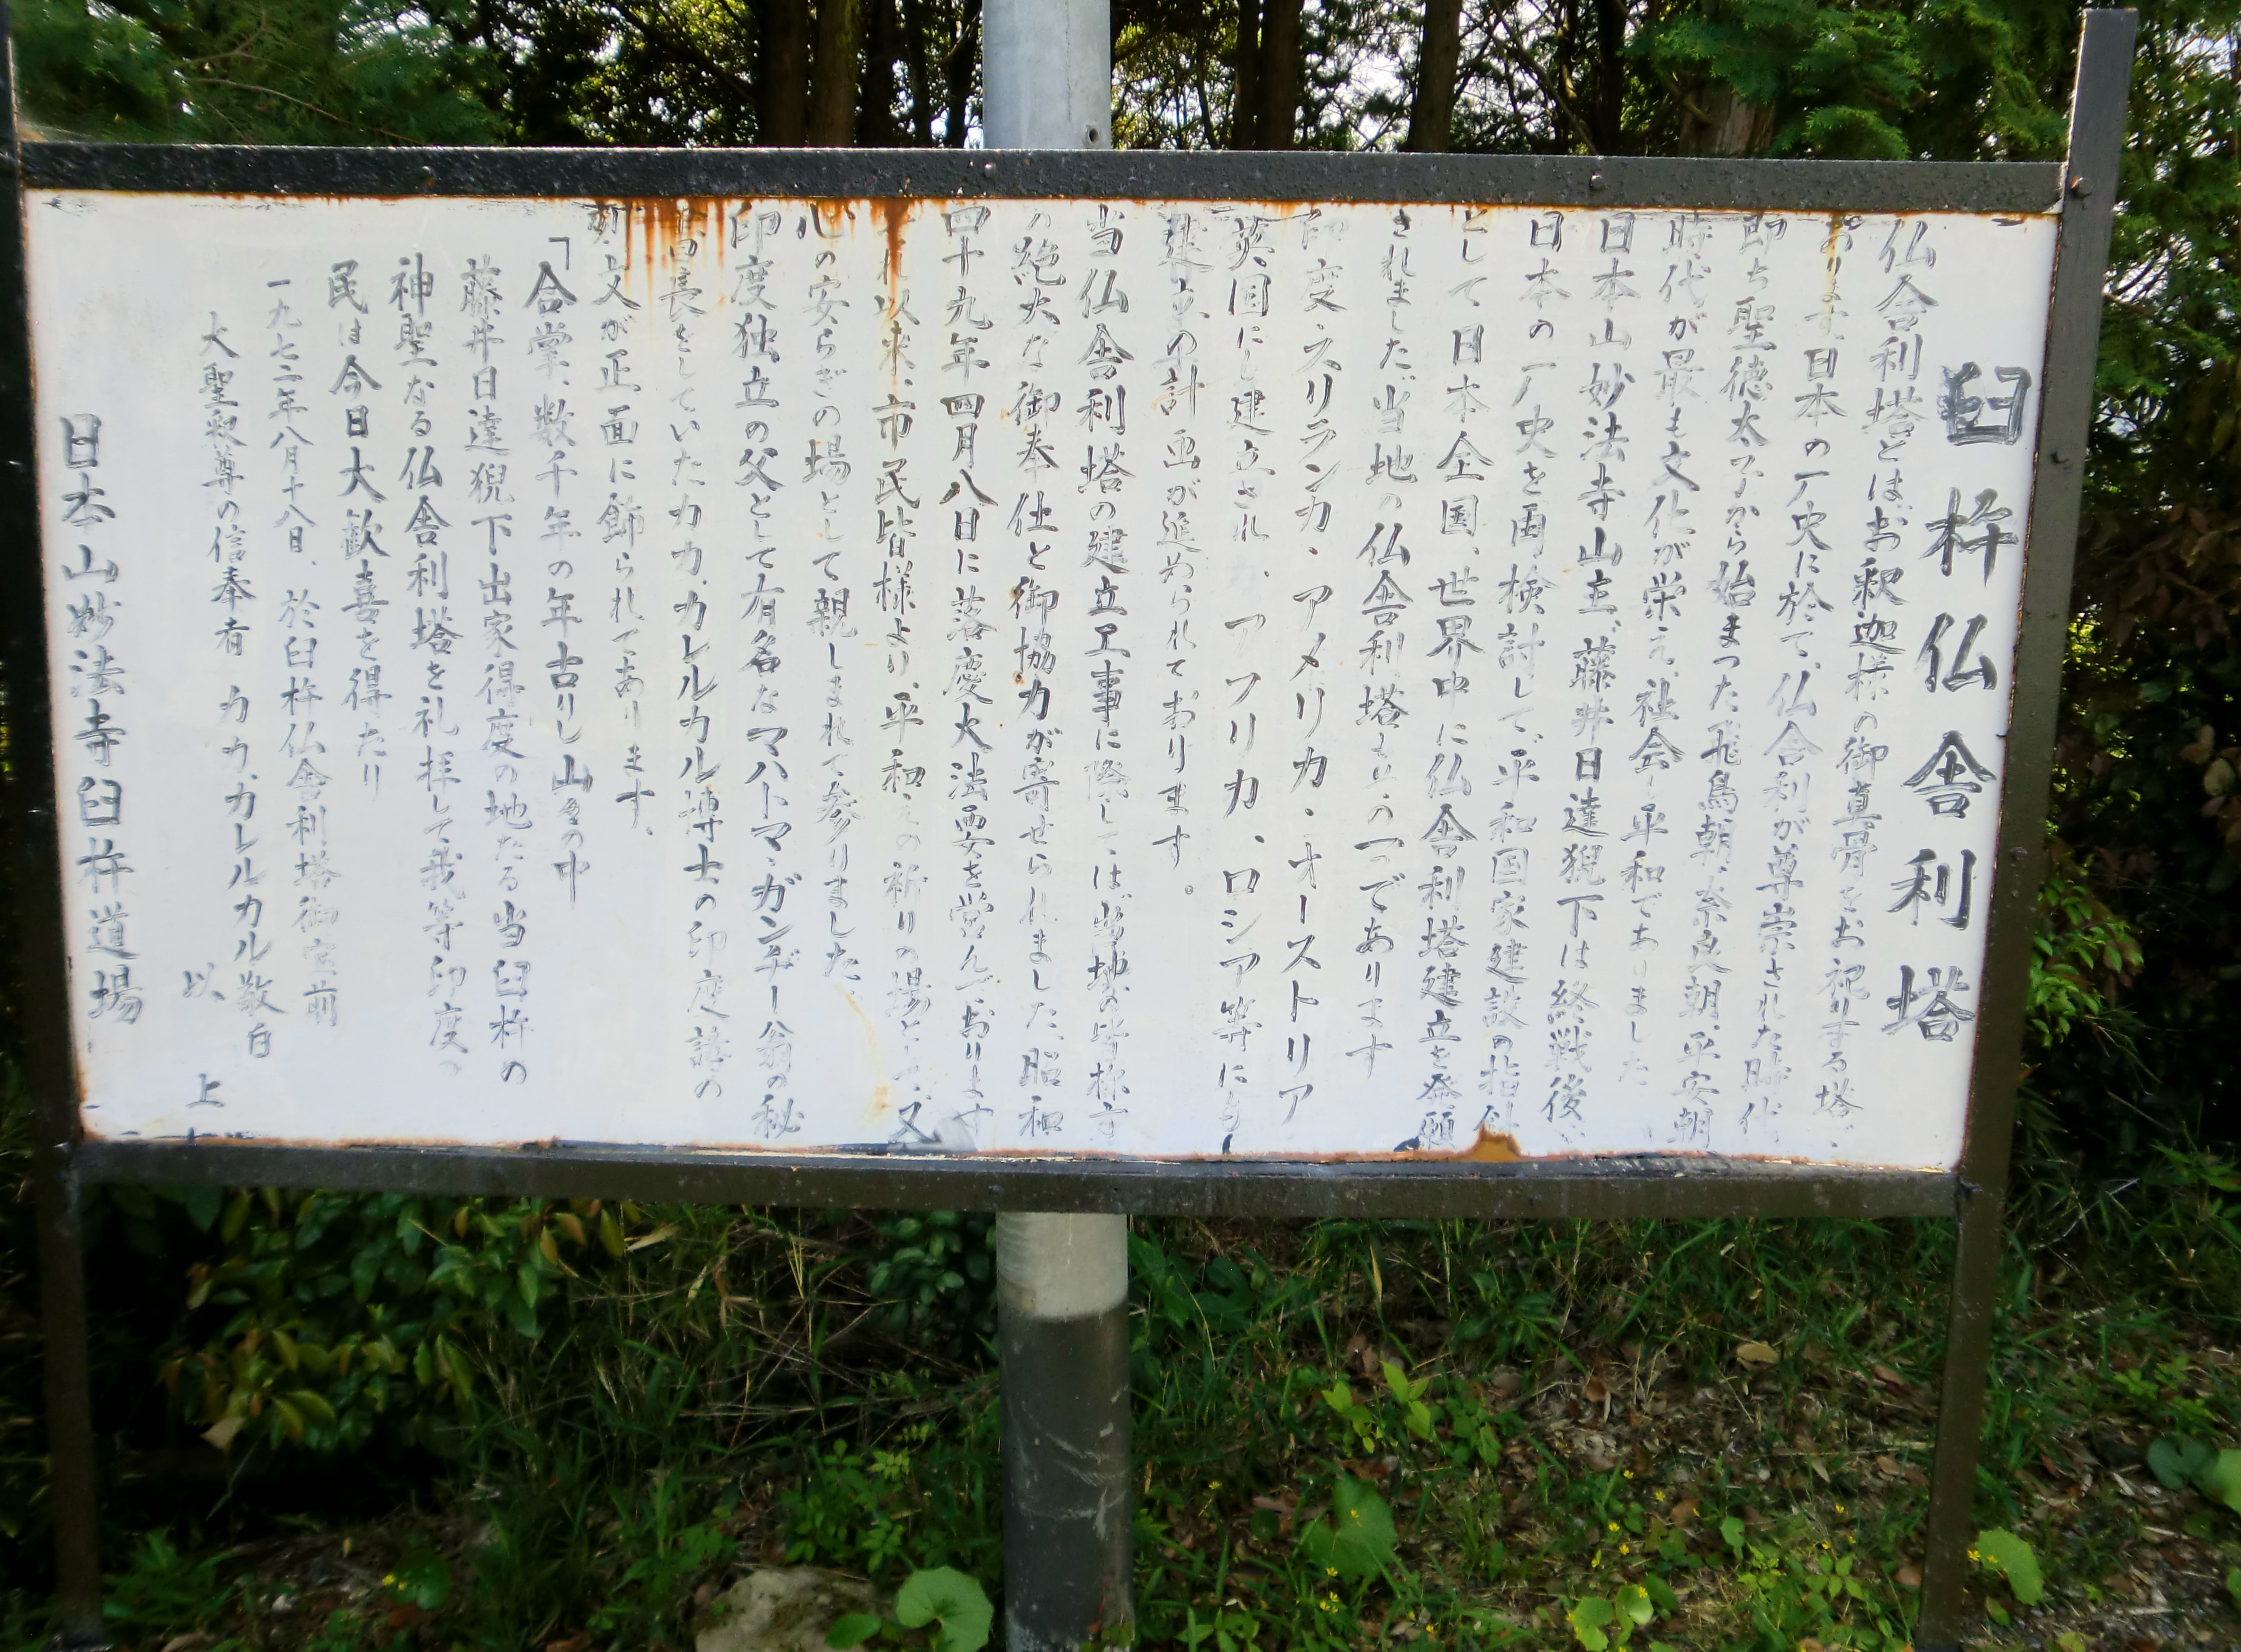 臼杵仏舎利塔
仏舎利塔とは、お釈迦様の御真骨をお祀りする塔で
あります。日本の厂史に於て、仏舎利が尊崇された時代、
即ち聖徳太子から始まった飛鳥朝、奈良朝、平安朝
時代が最も文化が栄え、社会も平和でありました
日本山妙法寺山主、藤井日達猊下は終戦後、
日本の厂史を再検討して、平和国家建設の指針
として日本全国、世界中に仏舎利塔建立を発願
されました。当地の仏舎利塔もその一つであります
印度・スリランカ・アメリカ・オーストリア
英国にも建立され、アフリカ、ロシア等にも
建立の計画が進められております。
当仏舎利塔の建立工事に際しては、当地の皆様方
の絶大な御奉仕と御協力が寄せられました。昭和
四十九年四月八日に落慶大法要を営んでおります
それ以来、市民皆様より、平和えの祈りの場として、又
心の安らぎの場として親しまれて参りました。
印度独立の父として有名なマハトマ・ガンヂー翁の秘
書長をしていたカカ・カレルカル博士の印度語の
刻文が正面に飾られてあります。
「合掌、数千年の年古りし山々の中
藤井日達猊下出家得度の地たる当臼杵の
神聖なる仏舎利塔を礼拝して我等印度の
民は今日大歓喜を得たり
一九七二年八月十八日、於臼杵仏舎利塔御宝前
大聖釈尊の信奉者 カカ・カレルカル敬白
以上
日本山妙法寺臼杵道場